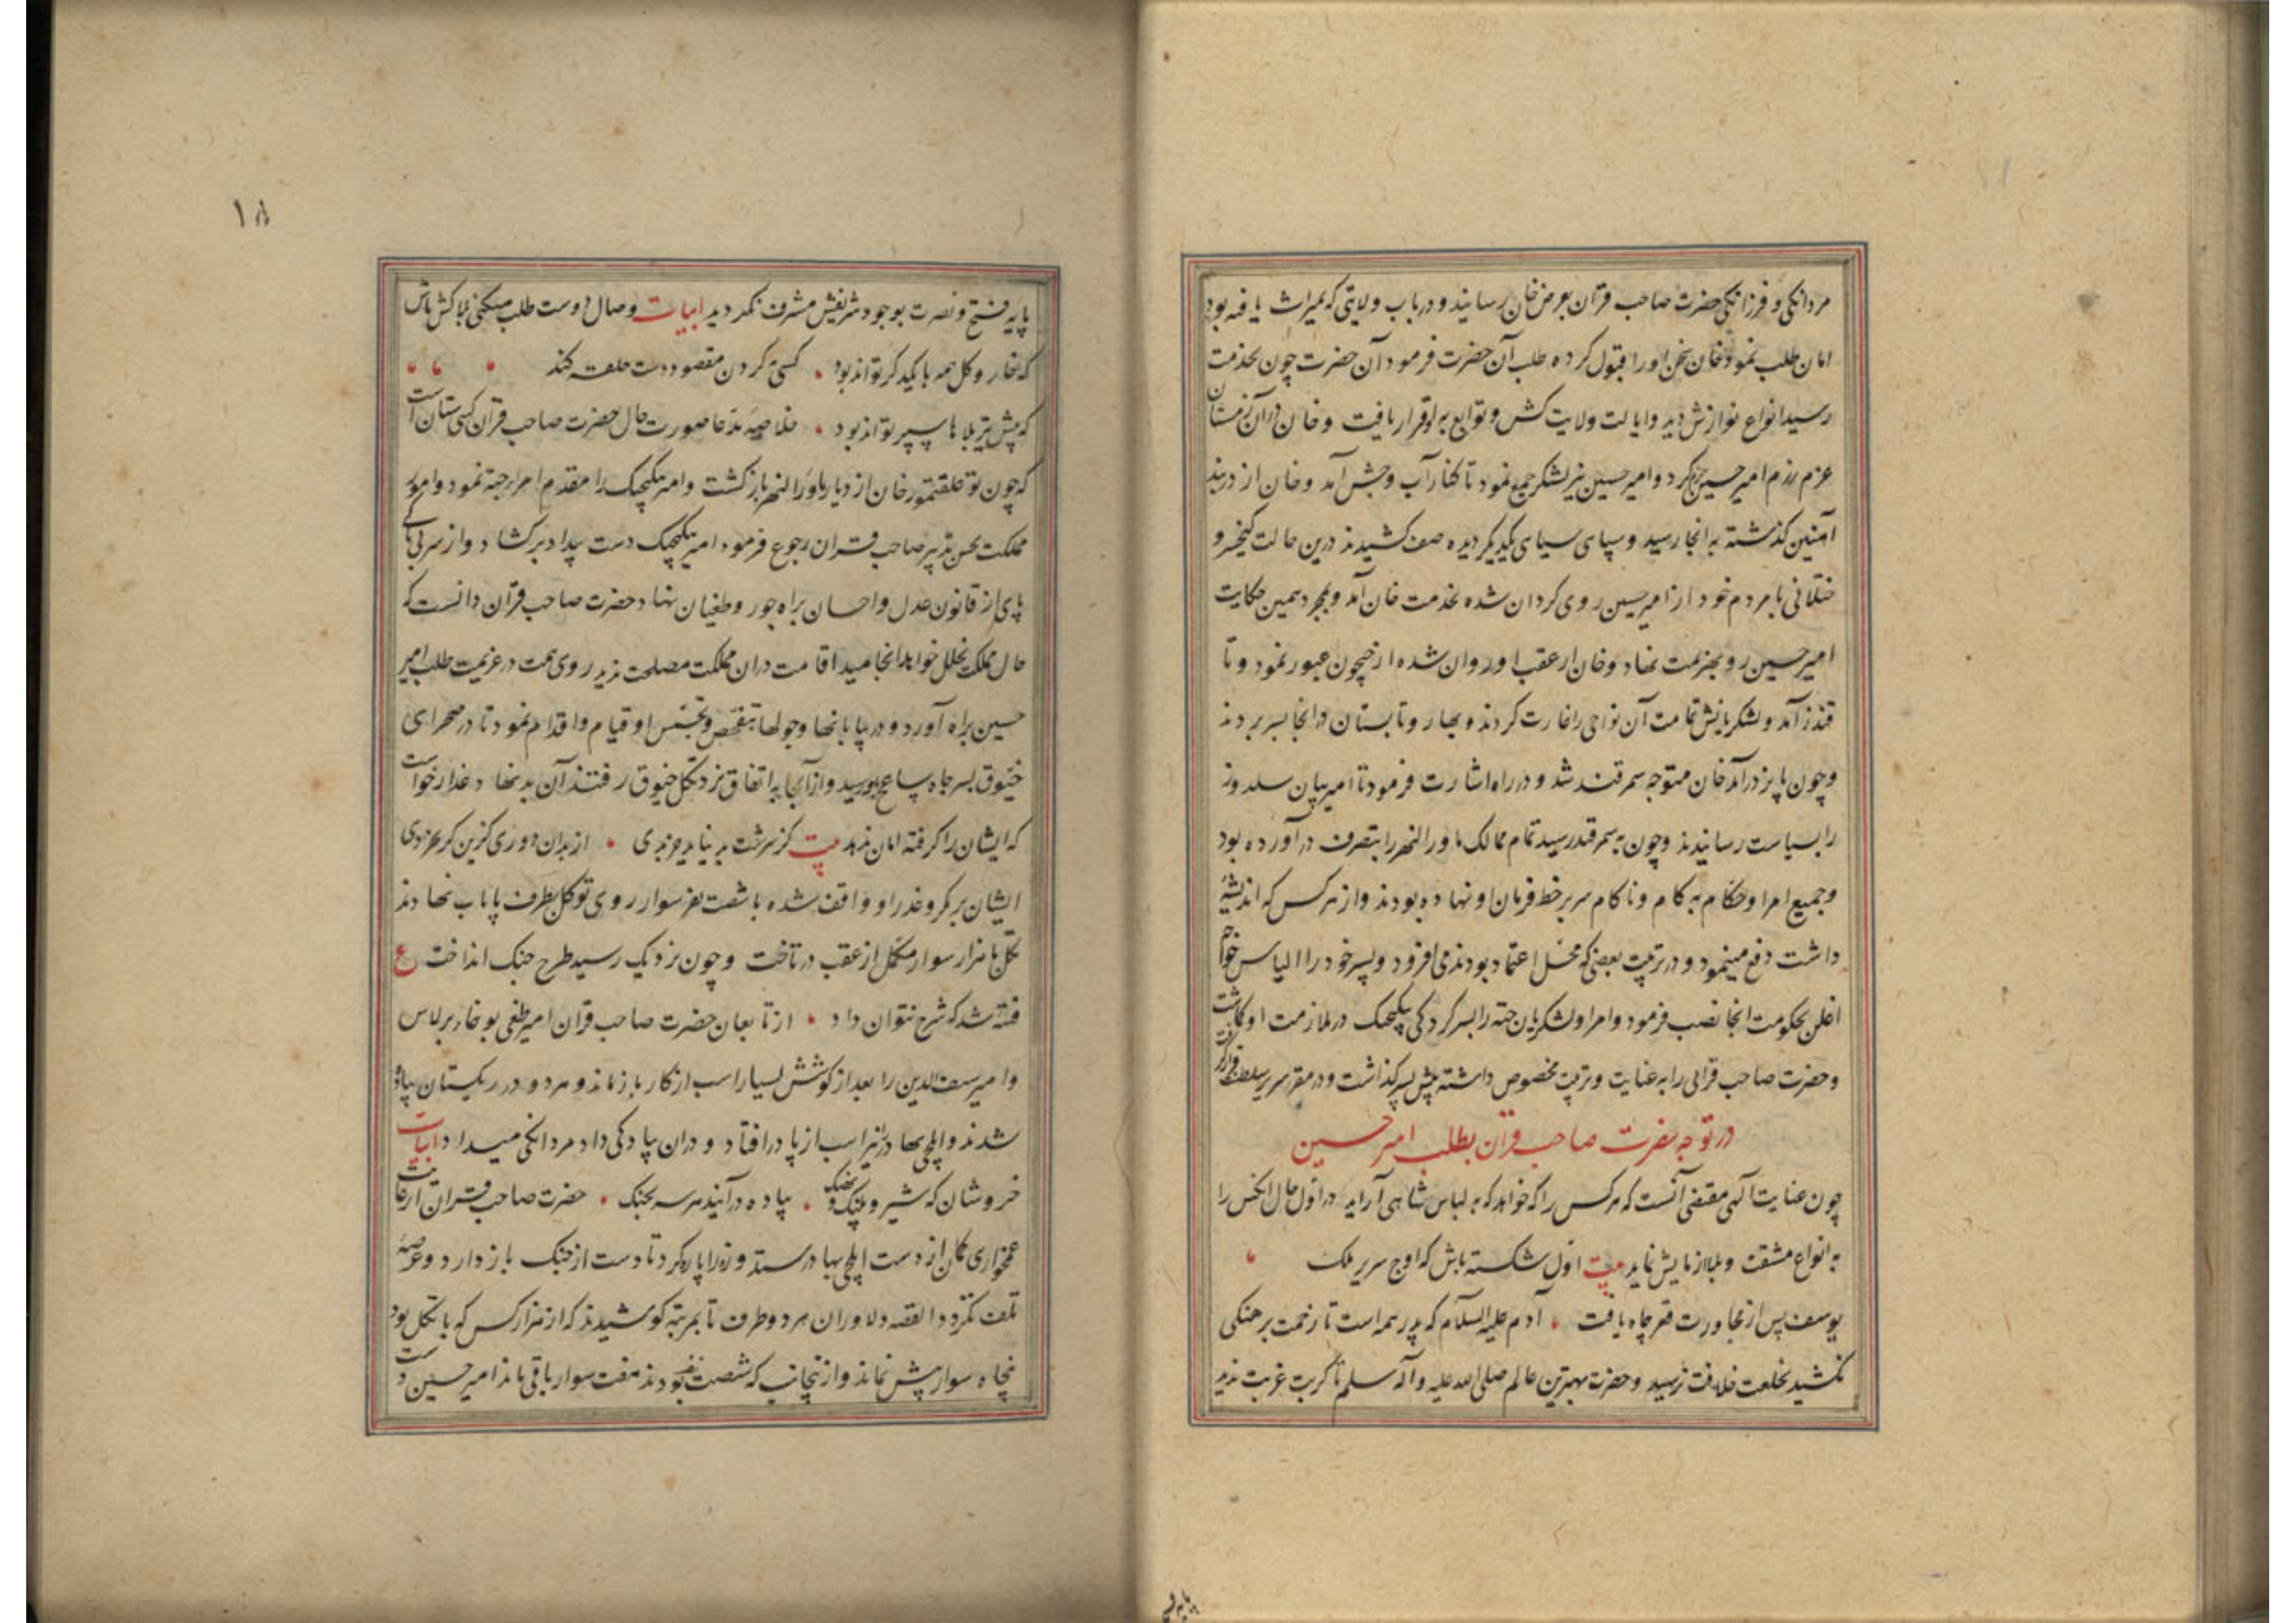 مردانگی و فرزانگی حضرت صاحب قران بعرض خان رسانیدند و درباب ولایتی که بمیراث یافته بود
امان طلب نمود خان سخن او را قبول کرده طلب آن حضرت فرمود آن حضرت چون بخدمت
رسید انواع نوازش دید و ایالت ولایت کش و توابع بر او قرار یافت و خان در آن زمستان
عزم رزم امیر حسین جزم کرد و امیر حسین نیز لشکر جمع نمود تا کنار آب وخش آمد و خان از دربند
آهنین گذشته به آنجا رسید و سپاهی سیاهی یکدیگر دیده صف کشیدند درین حالت کیخسرو
ختلانی با مردم خود از امیر حسین روی گردان شده بخدمت خان آمد و بمجرد همین حکایت
امیر حسین رو بهزیمت نهاد و خان از عقب او روان شده از جیحون عبور نمود و تا
قندز آمد و لشکریانش تمامت آن نواحی را غارت کردند و بهار و تابستان در آنجا بسر بردند
و چون پاییز درآمد خان متوجه سمرقند شد و در راه اشارت فرمود تا امیر بیان سلدوز
را بسیاست رسانیدند و چون به سمرقند رسید تمام ممالک ماورالنهر را بتصرف درآورده بود
و جمیع امرا و حکام به کام و ناکام سر بر خط فرمان او نهاده بودند و از هر کس که اندیشهٔ
داشت دفع مینمود و در تربیت بعضی که محل اعتماد بودند می افزود و پسر خود را الیاس خواجه
اغلن بحکومت آنجا نصب فرمود و امرا و لشکریان جته را بسرکردگی بیکیجک در ملازمت او گذاشت
و حضرت صاحب قرانی را به عنایت و تربیت مخصوص داشته پیش پسر گذاشت و در مقر سریر سلطنت قرار گرفت
در توجه حضرت صاحب قران بطلب امیر حسین
چون عنایت الهی مقتضی آنست که هر کس را که خواهد که به لباس شاهی آراید در اول حال آنکس را
به انواع مشقت و بلا آزمایش نماید بیت اول شکسته باش که اوج سریر ملک
یوسف پس از مجاورت قعر چاه یافت آدم علیه السلام که پدر همه است تا زحمت برهنگی
نکشید بخلعت خلافت نرسید و حضرت مهترین عالم صلی الله علیه و آله سلم تا کربت غربت ندید
پایه فتح
۱۸
پایه فتح و نصرت بوجود شریفش مشرف نگردید ابیات وصال دوست طلب میکنی بلاکش باش
که خار و گل همه با یکدگر تواند بود کسی به گردن مقصود دست حلقه کند
که پیش تیر بلاها سپر تواند بود خلاصه مدعا صورت حال حضرت صاحب قران گیتی ستان است
که چون توقلقتمور خان از دیار ماورا النهر باز گشت و امیر بیکیجک را مقدم امرا جته نمود و امور
مملکت بحسن تدبیر صاحب قران رجوع فرمود امیر بیکیجک دست بیداد برگشاد و از سر بی باکی
پای از قانون عدل و احسان براه جور و طغیان نهاد حضرت صاحب قران دانست که
حال مملکت بخلل خواهد انجامید اقامت در ان مملکت مصلحت ندید روی همت در عزیمت طلب امیر
حسین براه آورد و در بیابانها و چولها بتفحص و تجسس او قیام و اقدام نمود تا در صحرای
خیوق بسر چاه ساغج بدو رسید و از آنجا به اتفاق نزد تکل خیوق رفتند آن بدنهاد غدار خواست
که ایشان را گرفته امان ندهد بیت کز سرشت بد نیاید جز بدی از بدان دوری گزین گر بخردی
ایشان بر مکر و غدر او واقف شده با شصت نفر سوار روی توکل بطرف پایاب نهادند
تکل با هزار سوار مکمل از عقب درتاخت و چون نزدیک رسید طرح جنک انداخت ع
فتنه شد که شرح نتوان داد از تابعان حضرت صاحب قران امیر طغی بوغا برلاس
و امیر سیف الدین را بعد از کوشش بسیار اسب از کار باز ماند و هر دو در ریگستان پیاده
شدند و ایلچی بها در نیز اسب از پا درافتاد و در ان پیادگی داد مردانگی میداد ابیات
خروشان که شیر و پلنگ و نهنگ پیاده درآیند هر سه بجنگ حضرت صاحب قران از غایت
غمخواری کمان از دست ایلچی بها درستد و زه را پاره کرد تا دست از جنگ باز دارد و عرصه
تلف نگردد القصه دلاوران هر دو طرف تا بمرتبهٔ کوشیدند که از هزار کس که با تکل بود
پنجاه سوار بیش نماند و از ینجانب که شصت نفر بودند هفت سوار باقی ماند امیر حسین